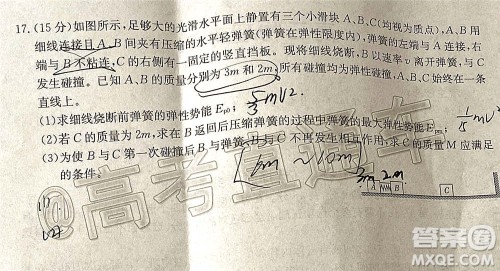 17.(15分)如图所示,足够大的光滑水平面上静置有三个小滑块A、B、C(均视为质点),A、B用
细线连接且A、B间夹有压缩的水平轻弹簧(弹簧在弹性限度内),弹簧的左端与A连接,右
端与B不粘连,C的右侧有一固定的竖直挡板。现将细线烧断,B以速率v离开弹簧,与C
发生碰撞。已知A、B的质量分别为3m和2m,所有碰撞均为弹性碰撞,A、B、C始终在一条
直线上。
(1)求细线烧断前弹簧的弹性势能Ep0; 5/3 mv².
(2)若C的质量为2m,求在B返回后压缩弹簧的过程中弹簧的最大弹性势能Epm; 1/5 mv²
(3)为使B与C第一次碰撞后B与弹簧与C不再发生相互作用,求C的质量M应满足
的条件。
[ m ~ 10m ]
3m 2m
A B C
(1)
(2)
@高考直通车
答案圈
MXQE.COM